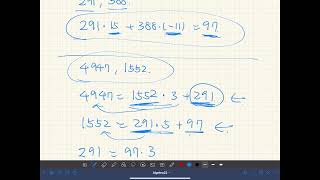 291, 388.
291·15 + 388·(-11) = 97
4947, 1552.
4947 = 1552·3 + 291 ←
1552 = 291·5 + 97 ←
291 = 97·3